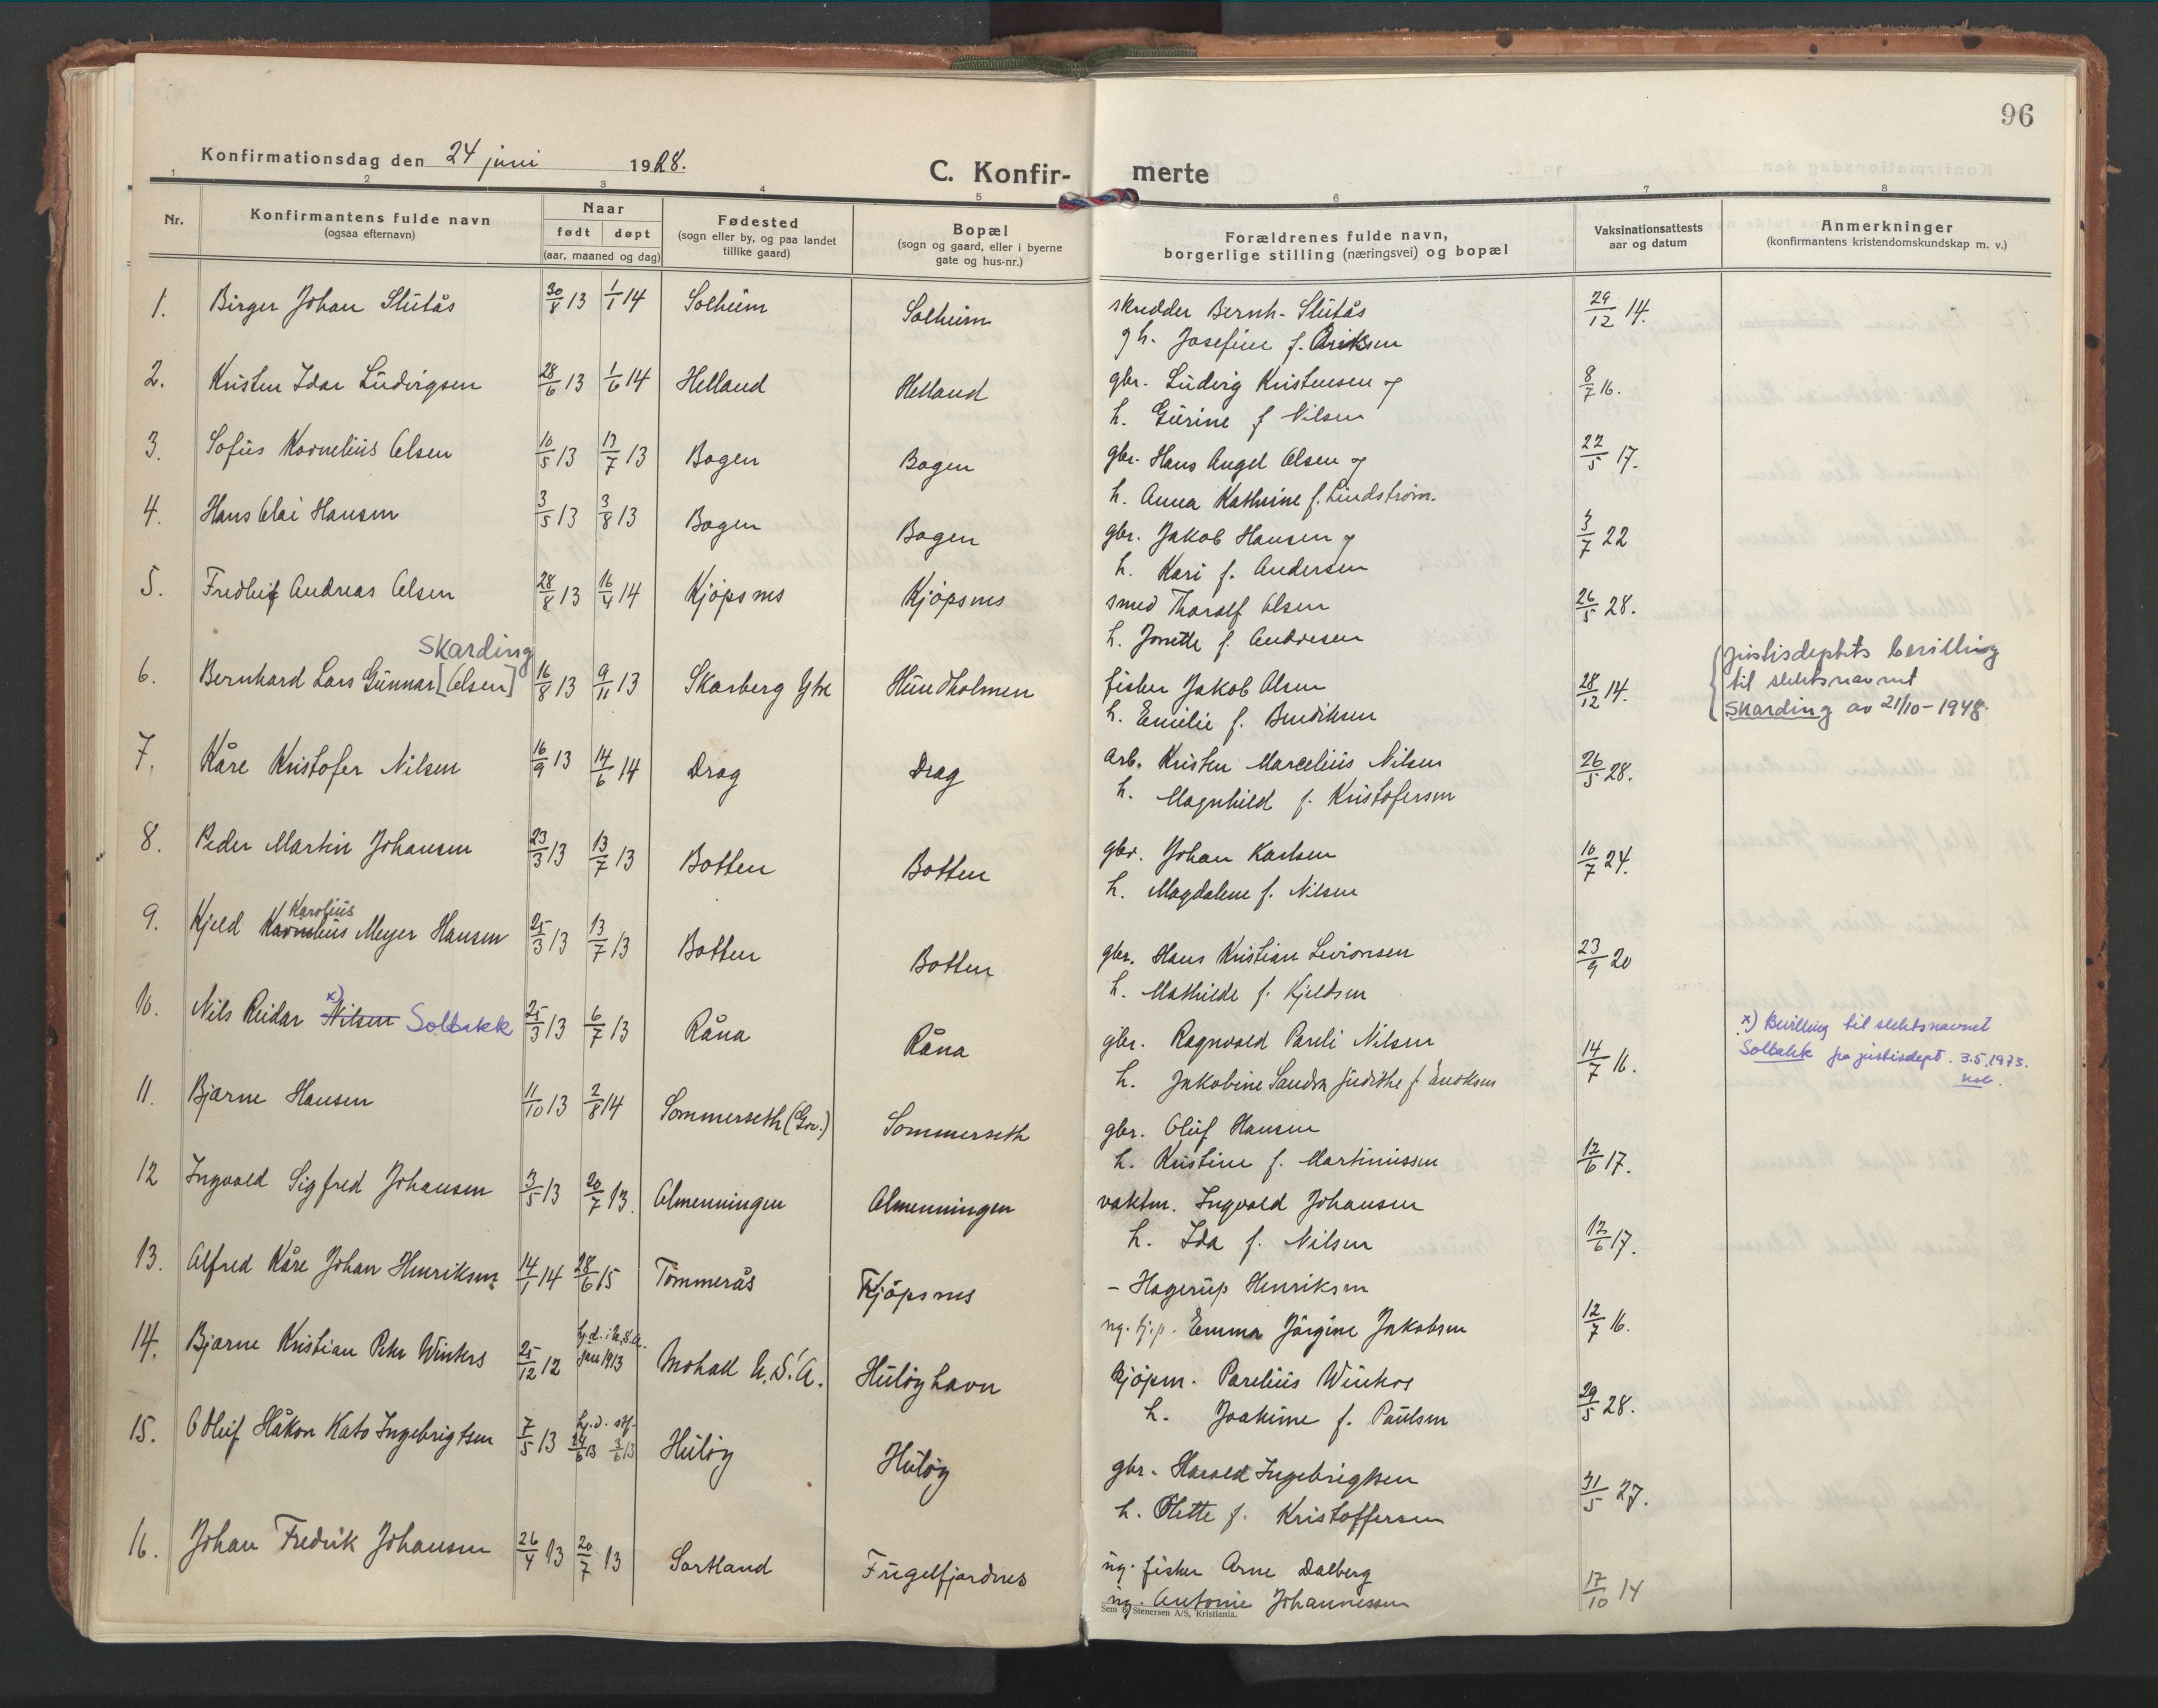 96
Konfirmationsdag den 24 juni 1928.
C. Konfir- merte
1 2 3 4 5 6 7 8
Nr.
Konfirmantens fulde navn
(ogsaa efternavn)
Naar
født døpt
(aar, maaned og dag)
Fødested
(sogn eller by, og paa landet
tillike gaard)
Bopæl
(sogn og gaard, eller i byerne
gate og hus-nr.)
Forældrenes fulde navn,
borgerlige stilling (næringsvei) og bopæl
Vaksinationsattests
aar og datum
Anmerkninger
(konfirmantens kristendomskundskap m. v.)
1. Birger Johan Slutås 30/8 13 1/1 14 Solheim Solheim skredder Bernh. Slutås 29/12 14.
g h. Josefine f.
2. Kristen Idar Ludvigsen 28/6 13 1/6 14 Helland Helland gbr. Ludvig Kristensen og 8/7 16.
h. Gurine f Nilsen
3. Sofus Kornelius Olsen 10/5 13 13/7 13 Bogen Bogen gbr. Hans Angel Olsen og 22/5 17.
h. Anna Kathrine f. Lindstrøm.
4. Hans Olai Hansen 3/5 13 3/8 13 Bogen Bogen gbr. Jakob Hansen og 3/7 22
h. Kari f. Andersen
5. Fredleif Andreas Olsen 28/8 13 16/4 14 Kjøpsnes Kjøpsnes smed Thoralf Olsen 26/5 28.
h. Jonette f. Andresen
Skarding
6. Bernhard Lars Gunnar [Olsen] 16/8 13 9/11 13 Skarberg Ytre Hundholmen fisker Jakob Olsen 28/12 14.
h. Emilie f. Bendiksen
Justisdeptets bevilling
til slektsnavnet
Skarding av 21/10-1948.
7. Kåre Kristofer Nilsen 16/9 13 14/6 14 Drag Drag arb. Kristen Marcelius Nilsen 26/5 28.
h. Magnhild f. Kristofersen
8. Peder Martin Johansen 23/3 13 13/7 13 Botten Botten gbr. Johan Karlsen 10/7 24.
h. Magdalene f. Nilsen
Karolius
9. Kjeld Kornelius Meyer Hansen 25/3 13 13/7 13 Botten Botten gbr. Hans Kristian Levionsen 23/9 20
h. Mathilde f. Kjeldsen
10. Nils Reidar x) Nilsen Solbakk 25/3 13 6/7 13 Råna Råna gbr. Ragnvald Pareli Nilsen 14/7 16.
h. Jakobine Sandra Judithe f. Enoksen
x) Bevilling til slektsnavnet
Solbakk fra justisdept. 3.5.1973.
11. Bjarne Hansen 11/10 13 2/8 14 Sommerseth (Grv.) Sommerseth gbr. Oluf Hansen 12/6 17.
h. Kristine f. Martinussen
12 Ingvald Sigfred Johansen 3/5 13 20/7 13. Almenningen Almenningen vaktm. Ingvald Johansen 12/6 17.
h. Ida f. Nilsen
13. Alfred Kåre Johan Henriksen 14/1 14 28/6 15 Tømmerås Kjøpsnes - Hagerup Henriksen 12/7 16.
ug. tj.p. Emma Jørgine Jakobsen
14. Bjarne Kristian Peter Winters 25/12 12 hj.d. i U.S.A. jan 1913 Mohall U.S.A. Huløyhavn kjøpm. Parelius Winters 29/5 28.
h. Joakime f. Paulsen
15. Odleif Håkon Kato Ingebrigtsen 7/5 13 hj.d. stf. 24/6 13 3/6 13 Huløy Huløy gbr. Harald Ingebrigtsen 31/5 27.
h. Olette f. Kristoffersen
16. Johan Fredrik Johansen 26/4 13 20/7 13 Sortland Fuglfjordnes ug. fisker Arne Dalberg 17/10 14
ug. Antonie Johannessen
Sem & Stenersen A/S, Kristiania.